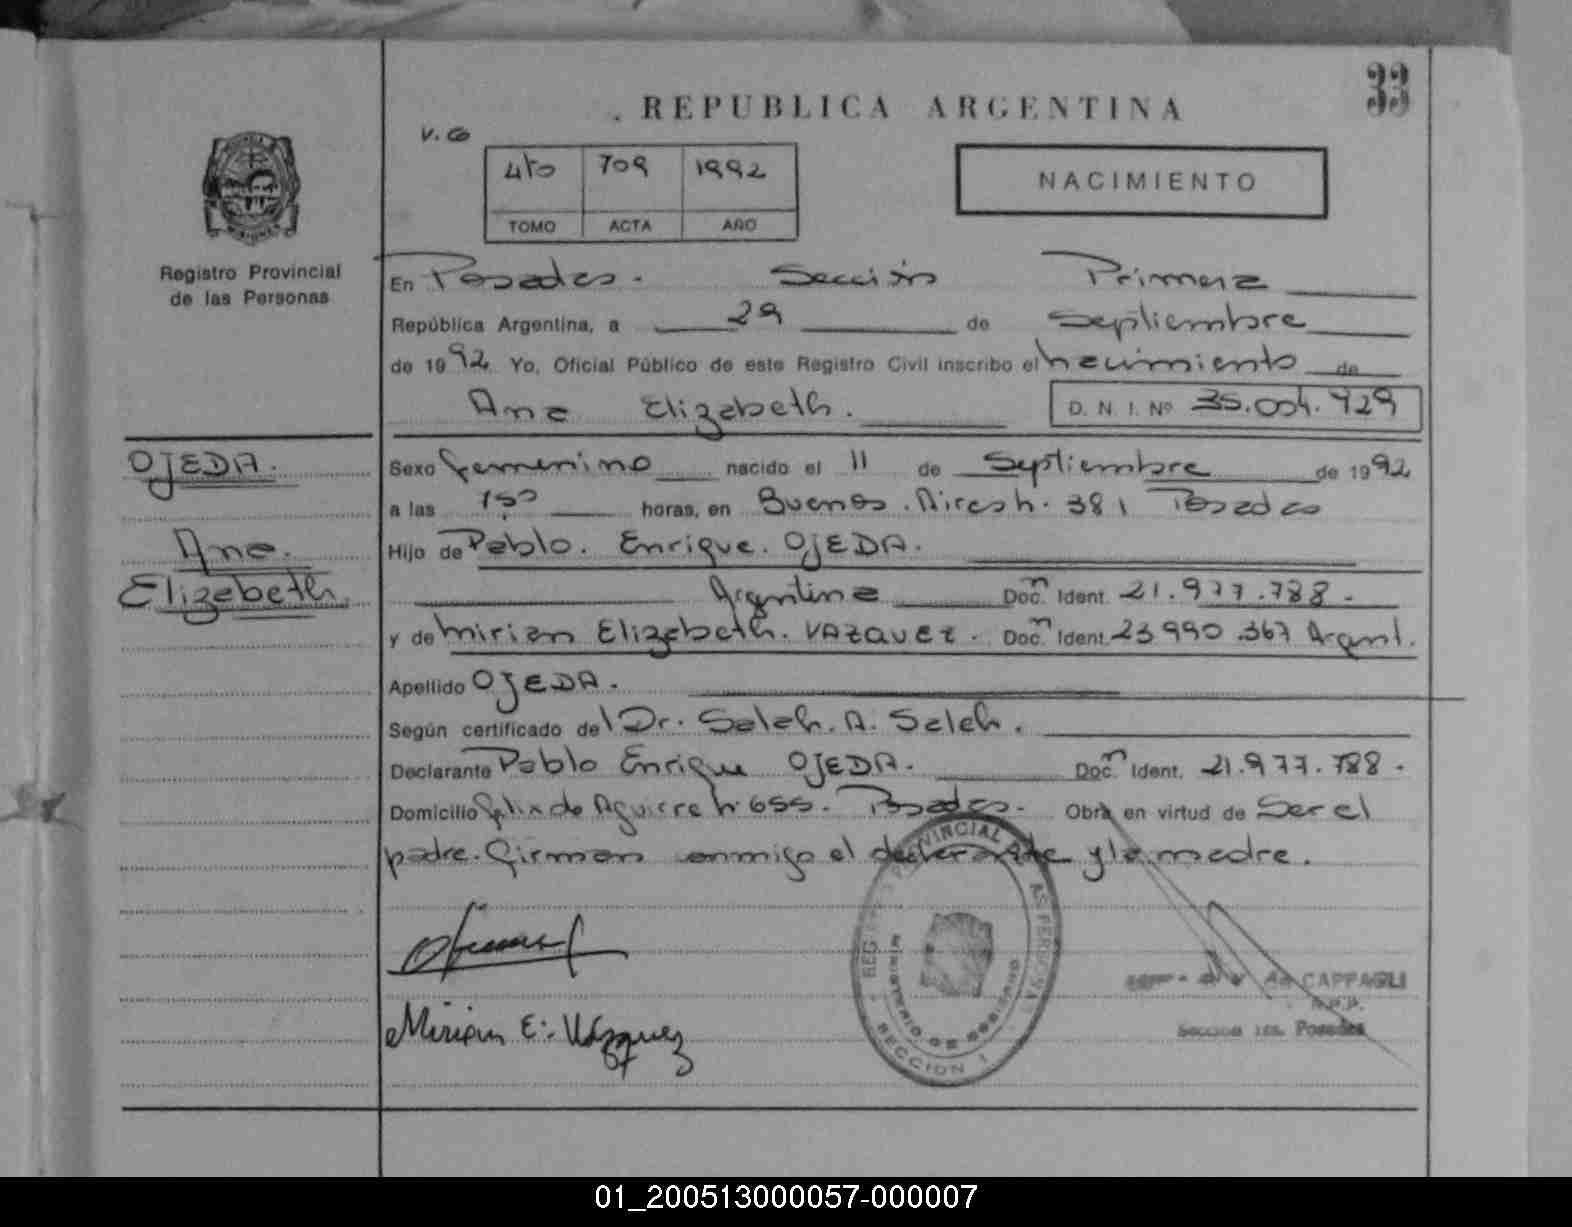 33
REPUBLICA ARGENTINA
V. Co
4to 709 1992
TOMO ACTA AÑO
NACIMIENTO
Registro Provincial
de las Personas
En Posadas. Sección Primera
República Argentina, a 29 de Septiembre
de 1992. Yo, Oficial Público de este Registro Civil inscribo el nacimiento de
Ana Elizabeth. D. N. I. Nº 35.004.929
OJEDA.
Ana.
Elizabeth.
Sexo femenino nacido el 11 de Septiembre de 1992
a las horas, en Buenos Aires n. 381 Posadas
Hijo de Pablo. Enrique. OJEDA.
Argentina Doc. Ident. 21.977.788.-
y de Mirian Elizabeth. VAZQUEZ. Doc. Ident. 23990.367 Argent.
Apellido OJEDA.
Según certificado del Dr. Saleh. A. Saleh.
Declarante Pablo Enrique OJEDA. Doc. Ident. 21.977.788.-
Domicilio Felix de Aguirre n. 655. Posadas. Obra en virtud de Ser el
padre. Firman conmigo el declarante y la madre.
Mirian E. Vázquez
REGISTRO PROVINCIAL DE LAS PERSONAS
MINISTERIO DE GOBIERNO
SECCION 1
de CAPPAGLI
Seccion 1ra. Posadas
01_200513000057-000007